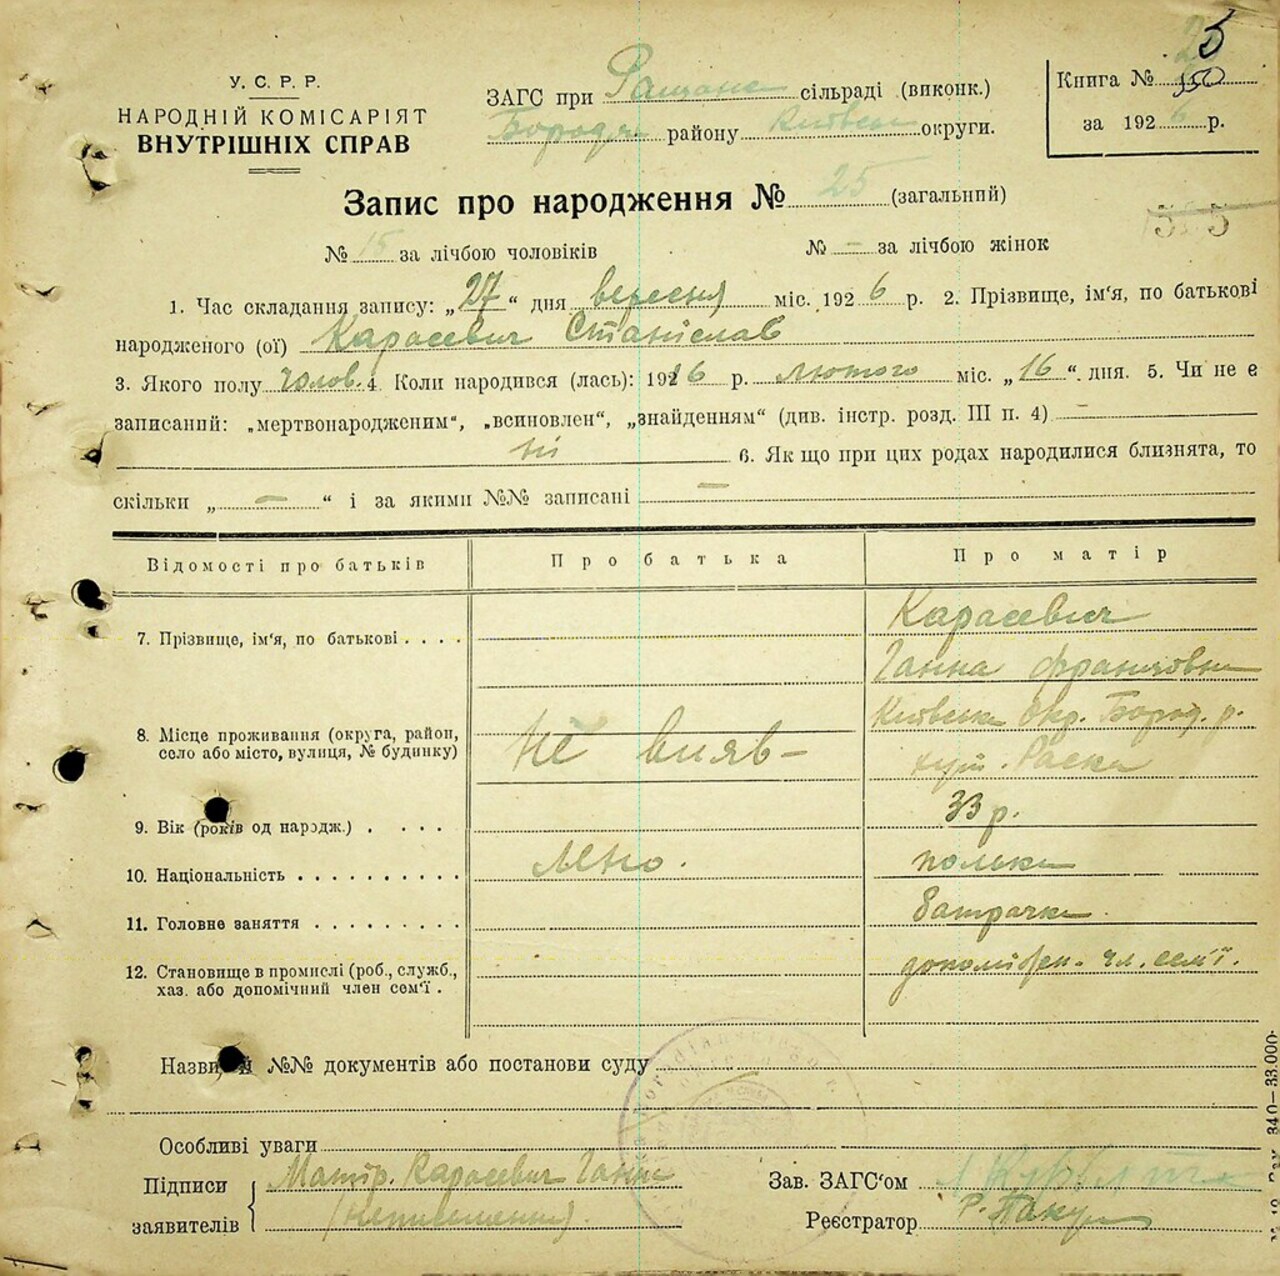 У. С. Р. Р.
НАРОДНІЙ КОМІСАРІЯТ
ВНУТРІШНІХ СПРАВ
ЗАГС при сільраді (виконк.)
Бородян району Київськ округи.
25
Книга № 350
за 1926 р.
Запис про народження № 25 (загальний)
№ 15 за лічбою чоловіків № — за лічбою жінок
1. Час складання запису: „27“ дня вересня міс. 1926 р. 2. Прізвище, ім‘я, по батькові
народженого (ої) Карасевич Станіслав
3. Якого полу чолов. 4. Коли народився (лась): 1926 р. лютого міс. „16“ дня. 5. Чи не є
записаний: „мертвонародженим“, „всиновлен“, „знайденням“ (див. інстр. розд. III п. 4) —
ні 6. Як що при цих родах народилися близнята, то
скільки „ — “ і за якими №№ записані —
Відомості про батьків Про батька Про матір
7. Прізвище, ім‘я, по батькові . . . . Карасевич
Ганна Францовна
8. Місце проживання (округа, район, Київськ Окр. Бород. р.
село або місто, вулиця, № будинку) Не вияв- хут. Раска
9. Вік (років од народж.) . . . . 33 р.
10. Національність . . . . . . . . . . лено. полька
11. Головне заняття . . . . . . . . . батрачка.
12. Становище в промислі (роб., служб., допоміжн. чл. сем‘ї.
хаз. або допомічний член сем‘ї .
Назви й №№ документів або постанови суду
Особливі уваги
Підписи Матір. Карасевич Ганна
заявителів (неписьменна)
Зав. ЗАГС‘ом
Реєстратор